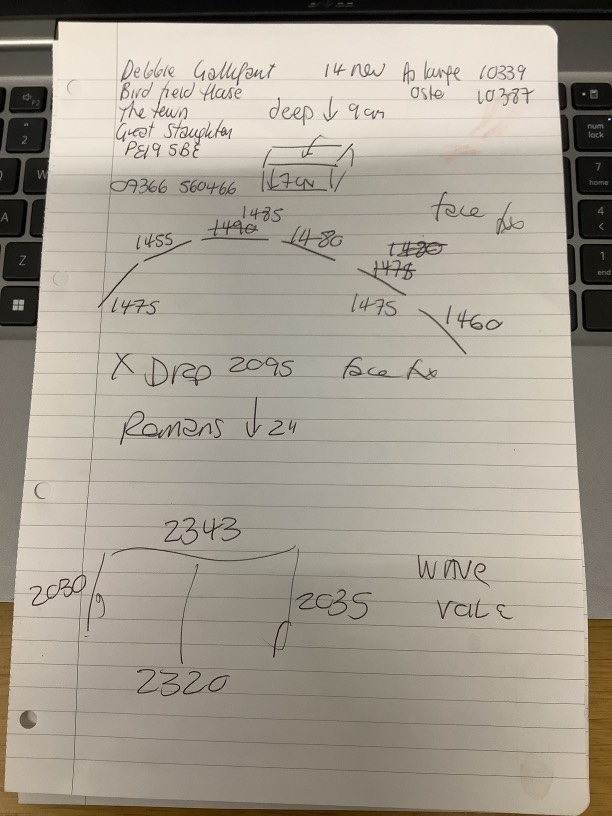 Debbie Gallifant 14 new 10339
Bird field 10387
The town deep ↓ 9cm
Great Staughton
PE19 5BE
07cm
09366 560466
face fix
1485
1490
1455
1480
1480
1478
1475
1475
1460
X Drop 2095 face fix
Romans ↓ 24
2343
2030
2035
wave
2320